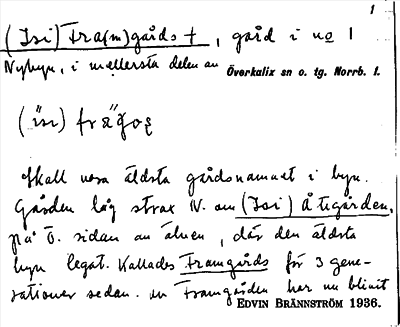 1
(Isi) Fra(m)gårds †, gård i no 1
Nybyn, i mellersta delen av Överkalix sn o. tg. Norrb. l.
Skall vara äldsta gårdsnamnet i byn.
Gården låg strax N. om (Isi) Åtigården,
på Ö. sidan av älven, där den äldsta
byn legat. Kallades Framgårds för 3 gene-
rationer sedan. Framgården har nu blivit
EDVIN BRÄNNSTRÖM 1936.